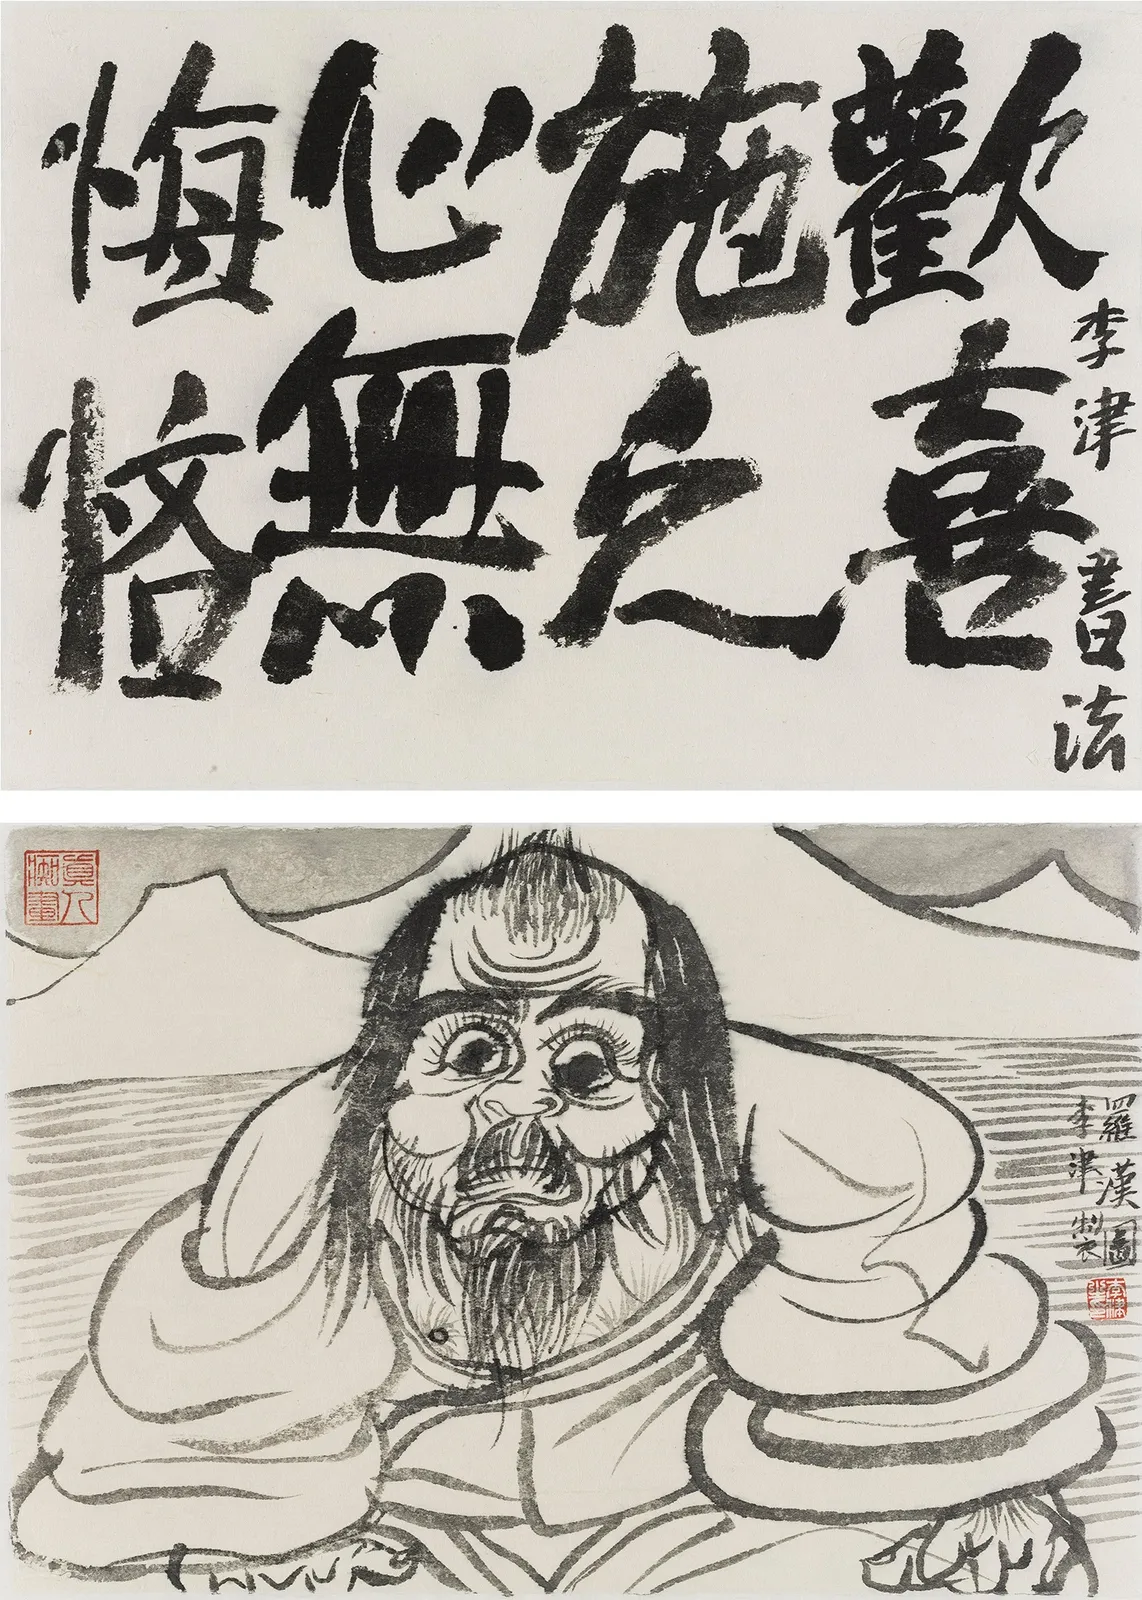 李津書法
歡喜
施之
心無
悔悋
羅漢圖
李津製